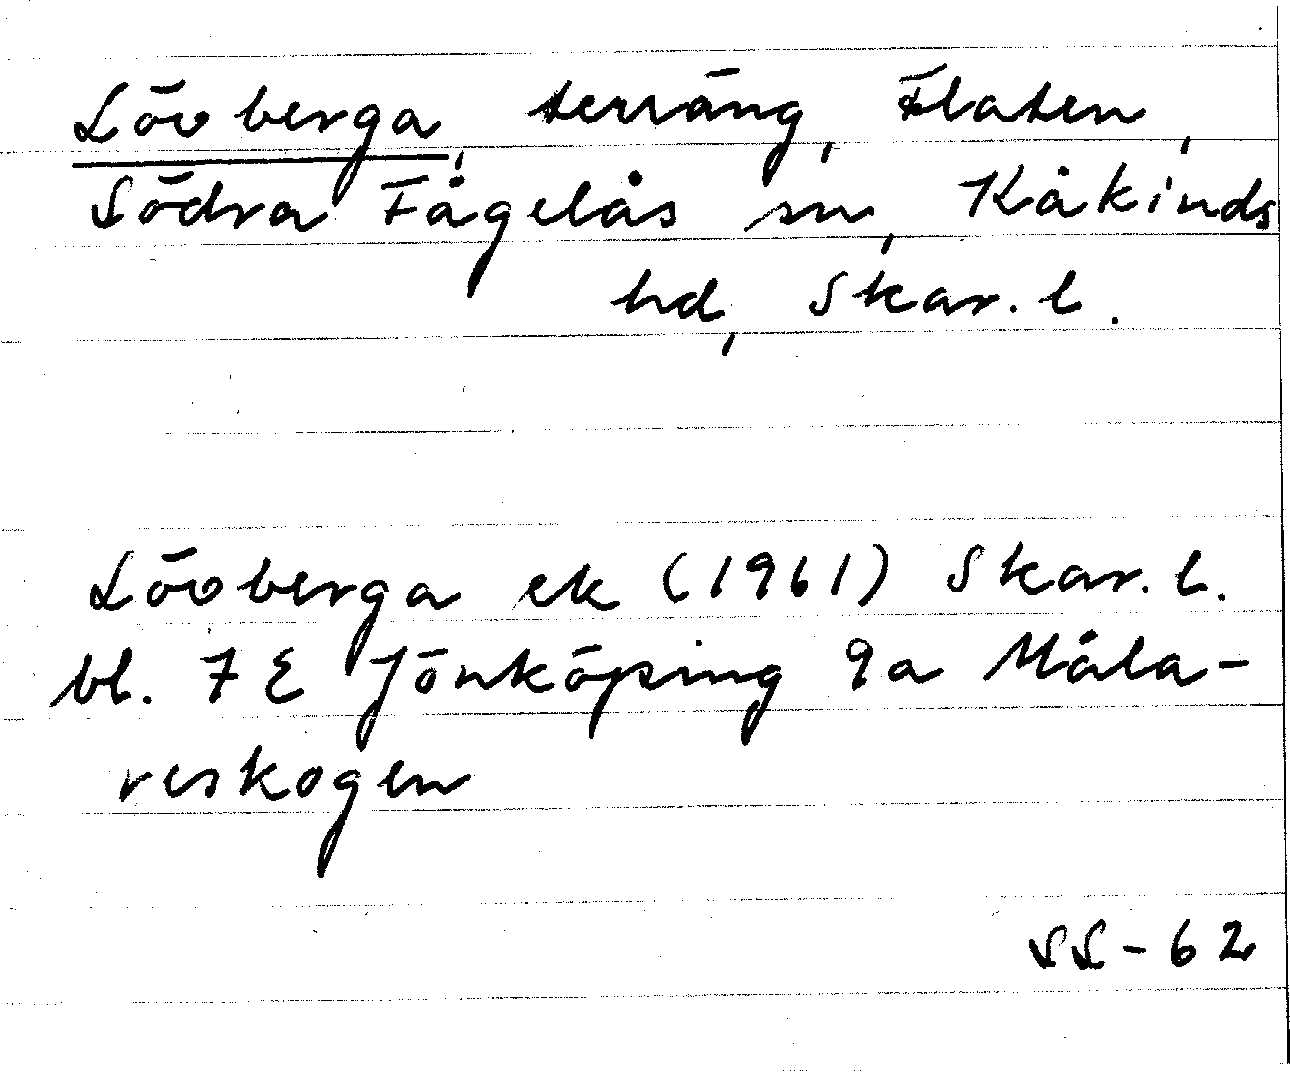 Lövberga, terräng, Flaten,
Södra Fågelås sn, Kåkinds
hd, Skar. l.
Lövberga ek (1961) Skar. l.
bl. 7 E Jönköping 9a Måla-
reskogen
SS-62